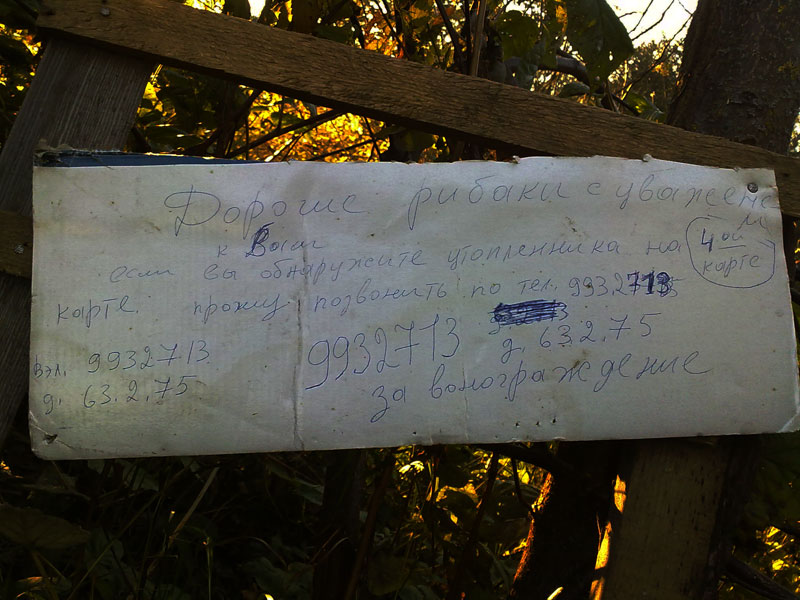 Дорогие рибаки с уважением
к Вам
если вы обнаружите утопленника на
4 ой
карте
карте. прошу позвонить по тел. 9932713
9932713
д. 63.2.75
вэл. 9932713
д. 63.2.75
за вонограждение